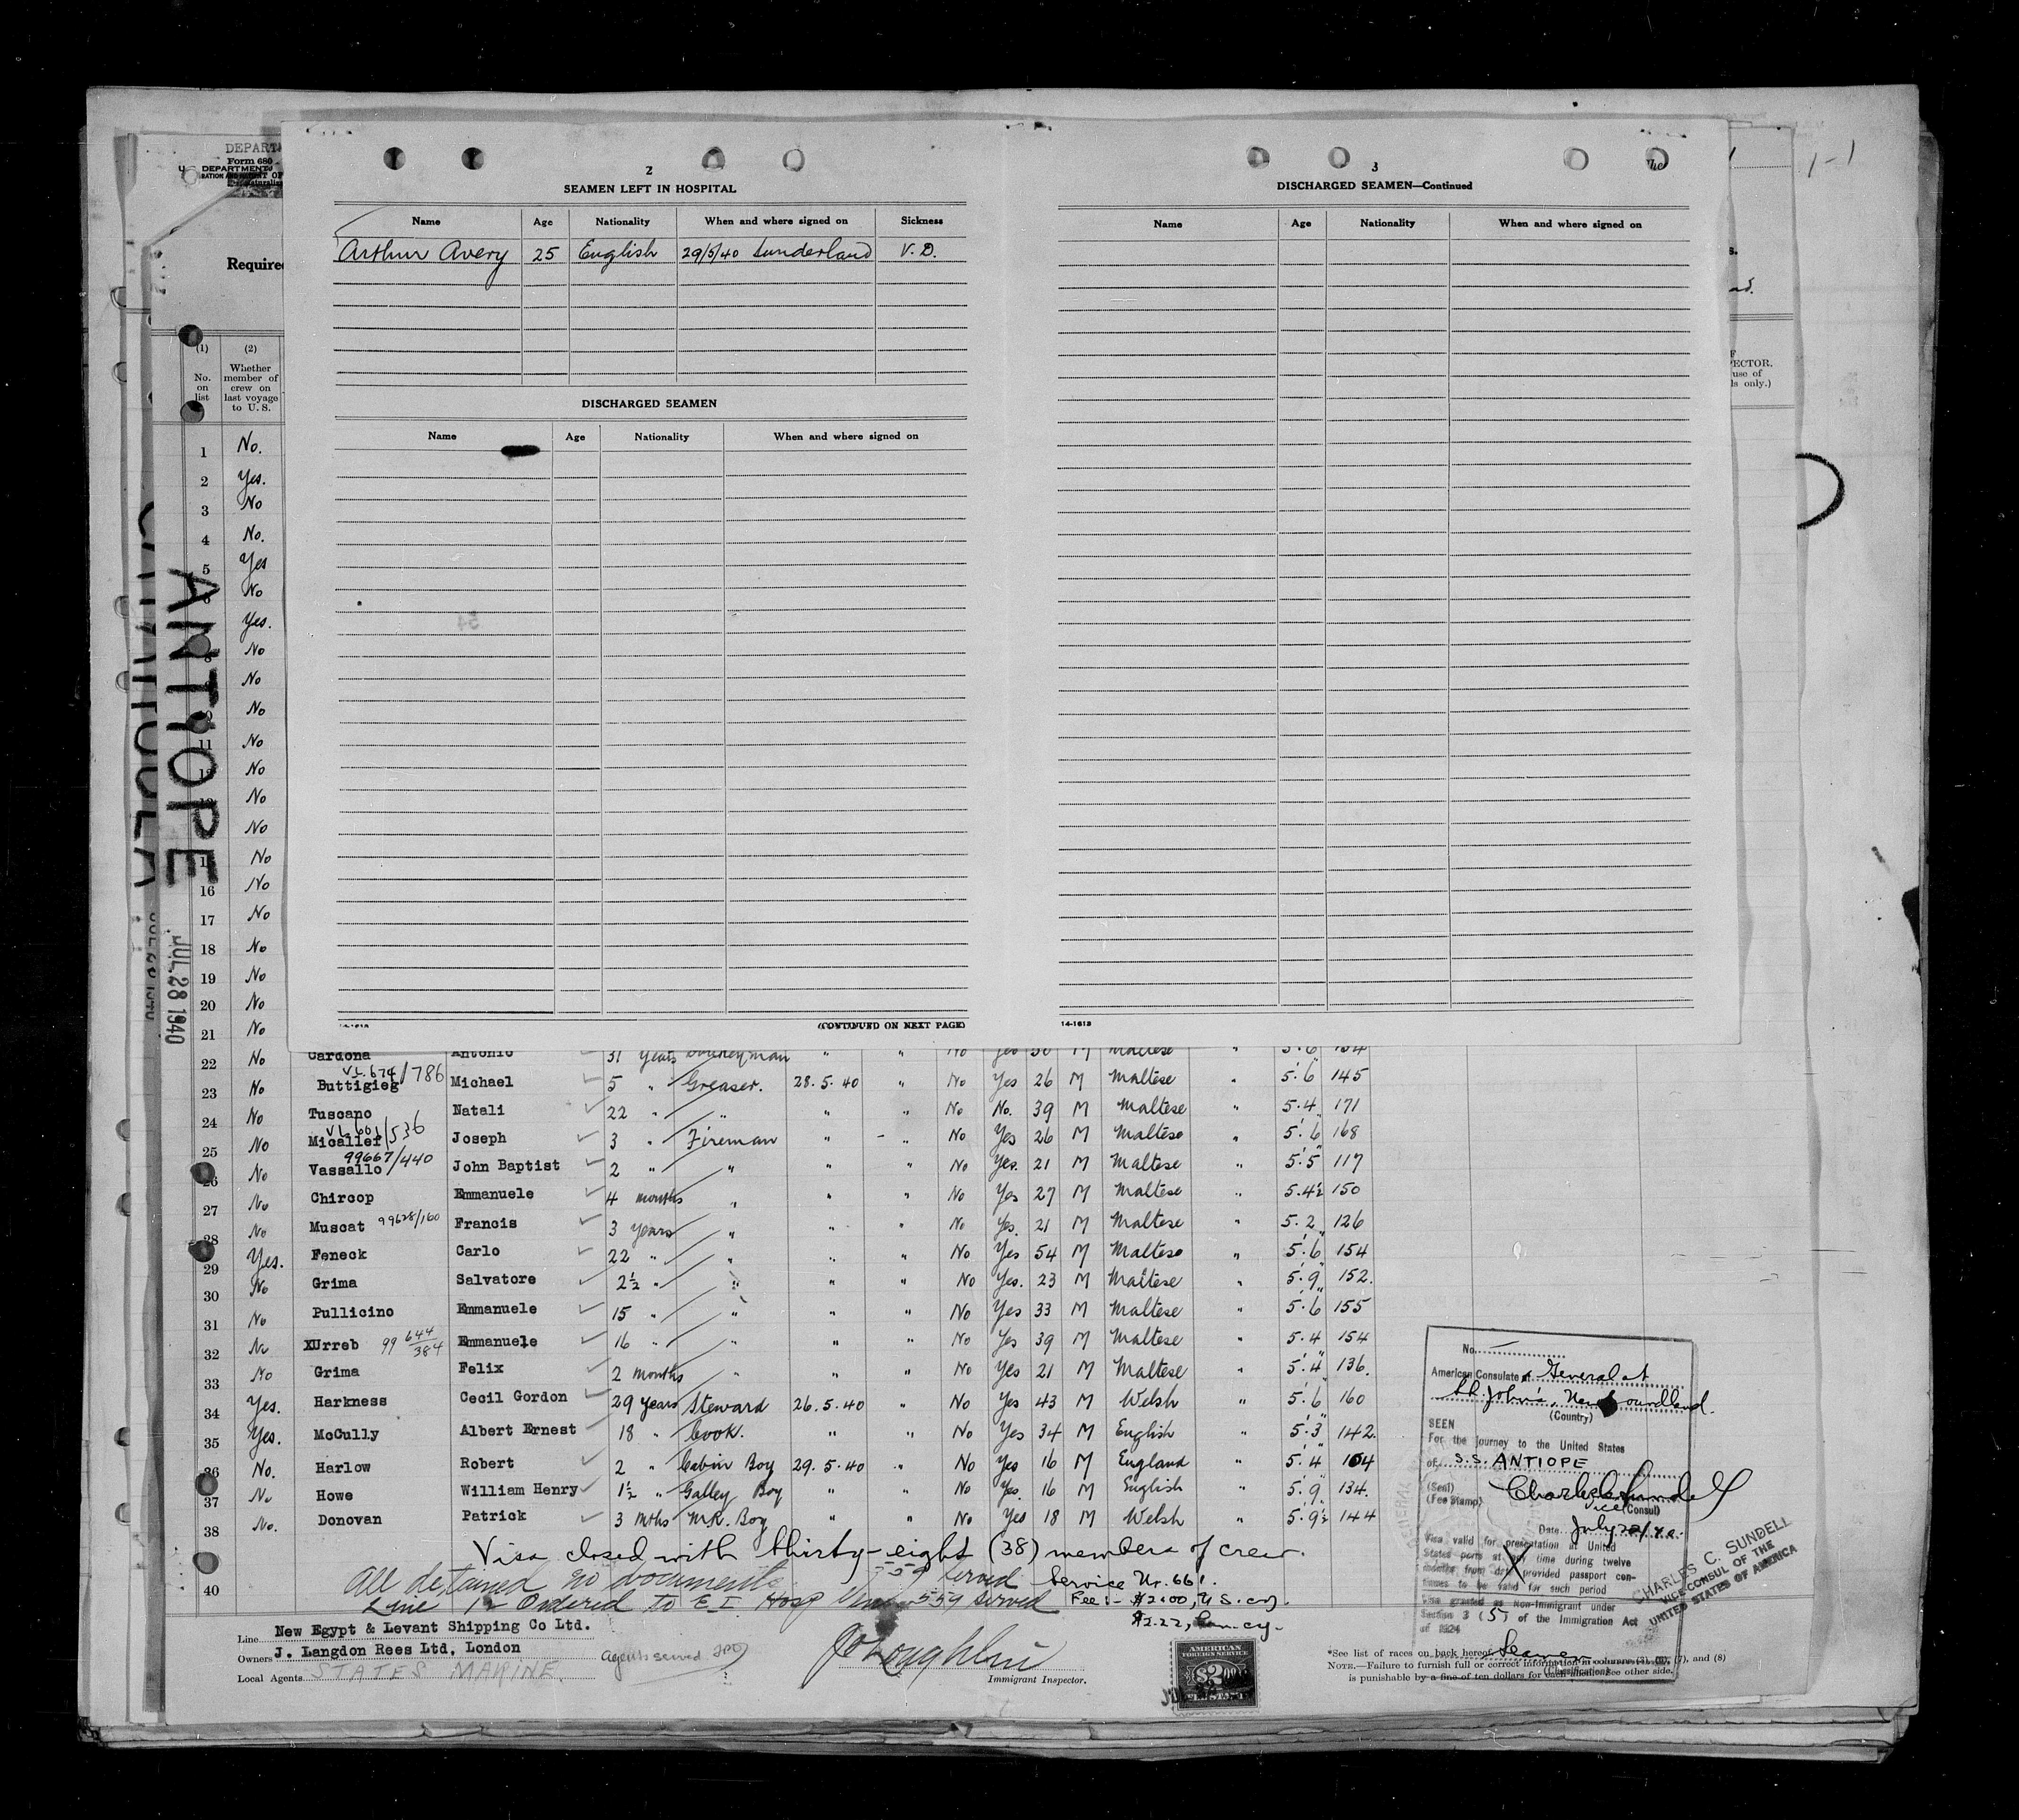 DEPART
Form 680
DEPARTMENT
Require
(1)
No.
on
list
(2)
Whether
member of
crew on
last voyage
to U. S.
2
SEAMEN LEFT IN HOSPITAL
Name Age Nationality When and where signed on Sickness
Arthur Avery 25 English 29/5/40 Sunderland V. D.
DISCHARGED SEAMEN
Name Age Nationality When and where signed on
(CONTINUED ON NEXT PAGE)
3
DISCHARGED SEAMEN—Continued
Name Age Nationality When and where signed on
14-1613
1-1
ANTIOPE
JUL 28 1940
1 No.
2 Yes.
3 No
4 No.
5 Yes
No
Yes.
8 No
No
No
11 No
No
No
No
No
16 No
17 No
18 No
19 No
20 No
21 No
22 No Cardona Antonio 31 years Donkeyman " " No Yes M Maltese " 5.6 154
23 No Buttigieg VL.674/786 Michael 5 " Greaser. 28.5.40 " No Yes 26 M Maltese " 5.6 145
24 No Tuscano Natali 22 " " " " No No. 39 M Maltese " 5.4 171
25 No Micallef VL.601/536 Joseph 3 " Fireman " " No Yes 26 M Maltese " 5.6 168
26 No Vassallo 99667/440 John Baptist 2 " " " " No Yes. 21 M Maltese " 5.5 117
27 No Chircop Emmanuele 4 months " " " No Yes 27 M Maltese " 5.4½ 150
28 No Muscat 99628/160 Francis 3 years " " " No Yes. 21 M Maltese " 5.2 126
29 Yes. Feneck Carlo 22 " " " " No Yes 54 M Maltese " 5.6 154
30 No Grima Salvatore 2½ " " " " No Yes. 23 M Maltese " 5.9 152.
31 No Pullicino Emmanuele 15 " " " " No Yes 33 M Maltese " 5.6 155
32 No XUrreb 99 644/384 Emmanuele 16 " " " " No Yes 39 M Maltese " 5.4 154
33 No Grima Felix 2 months " " " No Yes 21 M Maltese " 5.4 136
34 Yes. Harkness Cecil Gordon 29 years Steward 26.5.40 " No Yes 43 M Welsh " 5.6 160
35 Yes. McCully Albert Ernest 18 " Cook. " " No Yes 34 M English " 5.3 142.
36 No. Harlow Robert 2 " Cabin Boy 29.5.40 " No Yes 16 M England " 5.4 104
37 No Howe William Henry 1½ " Galley Boy " " No Yes. 16 M English " 5.9 134.
38 No. Donovan Patrick 3 mths M.R. Boy " " No Yes 18 M Welsh " 5.9½ 144
Visa closed with thirty-eight (38) members of crew.
All detained no documents 559 served
Service Nr. 661.
40 Line 12 Ordered to E I Hosp 559 served
Fee:- $2.00, U S. cy.
$2.22, Can. cy.
Line New Egypt & Levant Shipping Co Ltd.
Owners J. Langdon Rees Ltd, London
Local Agents STATES MARINE
Agents served
Immigrant Inspector.
AMERICAN
FOREIGN SERVICE
$2.00
FEE STAMP
No.
American Consulate General at
St. John's, Newfoundland.
(Country)
SEEN
For the journey to the United States
of S.S. ANTIOPE
(Seal)
(Fee Stamp)
Charles C. Sundell
Vice (Consul)
Date July 22/40.
Visa valid for presentation at United
States ports at any time during twelve
months from date provided passport con-
tinues to be valid for such period
Visa granted as Non-Immigrant under
Section 3 (5) of the Immigration Act
of 1924
Seamen
(Classification)
CHARLES C. SUNDELL
VICE CONSUL OF THE
UNITED STATES OF AMERICA
*See list of races on back hereof
NOTE.—Failure to furnish full or correct information in columns (7), and (8)
is punishable by a fine of ten dollars for each alien. See other side.